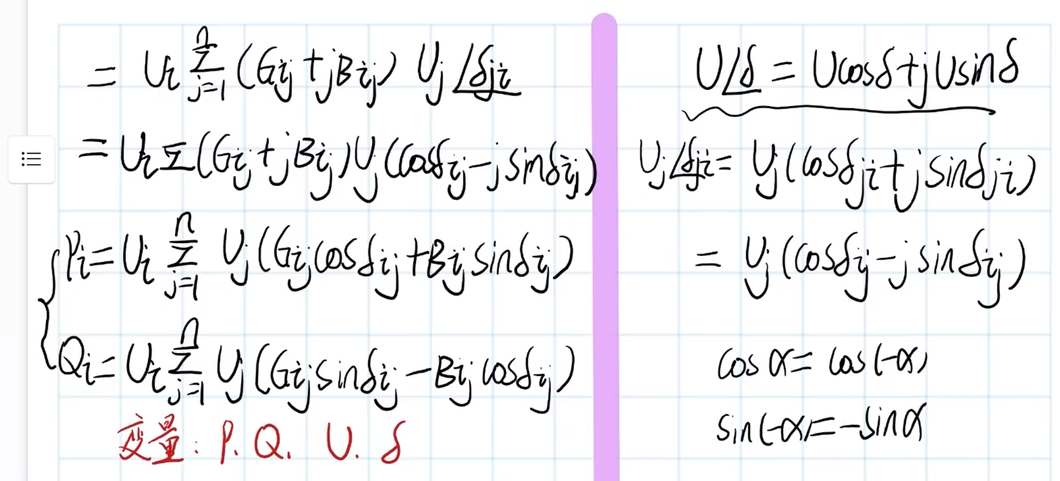 = Uᵢ Σⁿⱼ₌₁ (Gᵢⱼ + jBᵢⱼ) Uⱼ∠δⱼᵢ
= Uᵢ Σ (Gᵢⱼ + jBᵢⱼ) Uⱼ (cosδᵢⱼ - j sinδᵢⱼ)
Pᵢ = Uᵢ Σⁿⱼ₌₁ Uⱼ (Gᵢⱼ cosδᵢⱼ + Bᵢⱼ sinδᵢⱼ)
Qᵢ = Uᵢ Σⁿⱼ₌₁ Uⱼ (Gᵢⱼ sinδᵢⱼ - Bᵢⱼ cosδᵢⱼ)
变量: P. Q. U. δ
U∠δ = Ucosδ + jUsinδ
Uⱼ∠δⱼᵢ = Uⱼ (cosδⱼᵢ + j sinδⱼᵢ)
= Uⱼ (cosδᵢⱼ - j sinδᵢⱼ)
cos α = cos(-α)
sin(-α) = -sinα